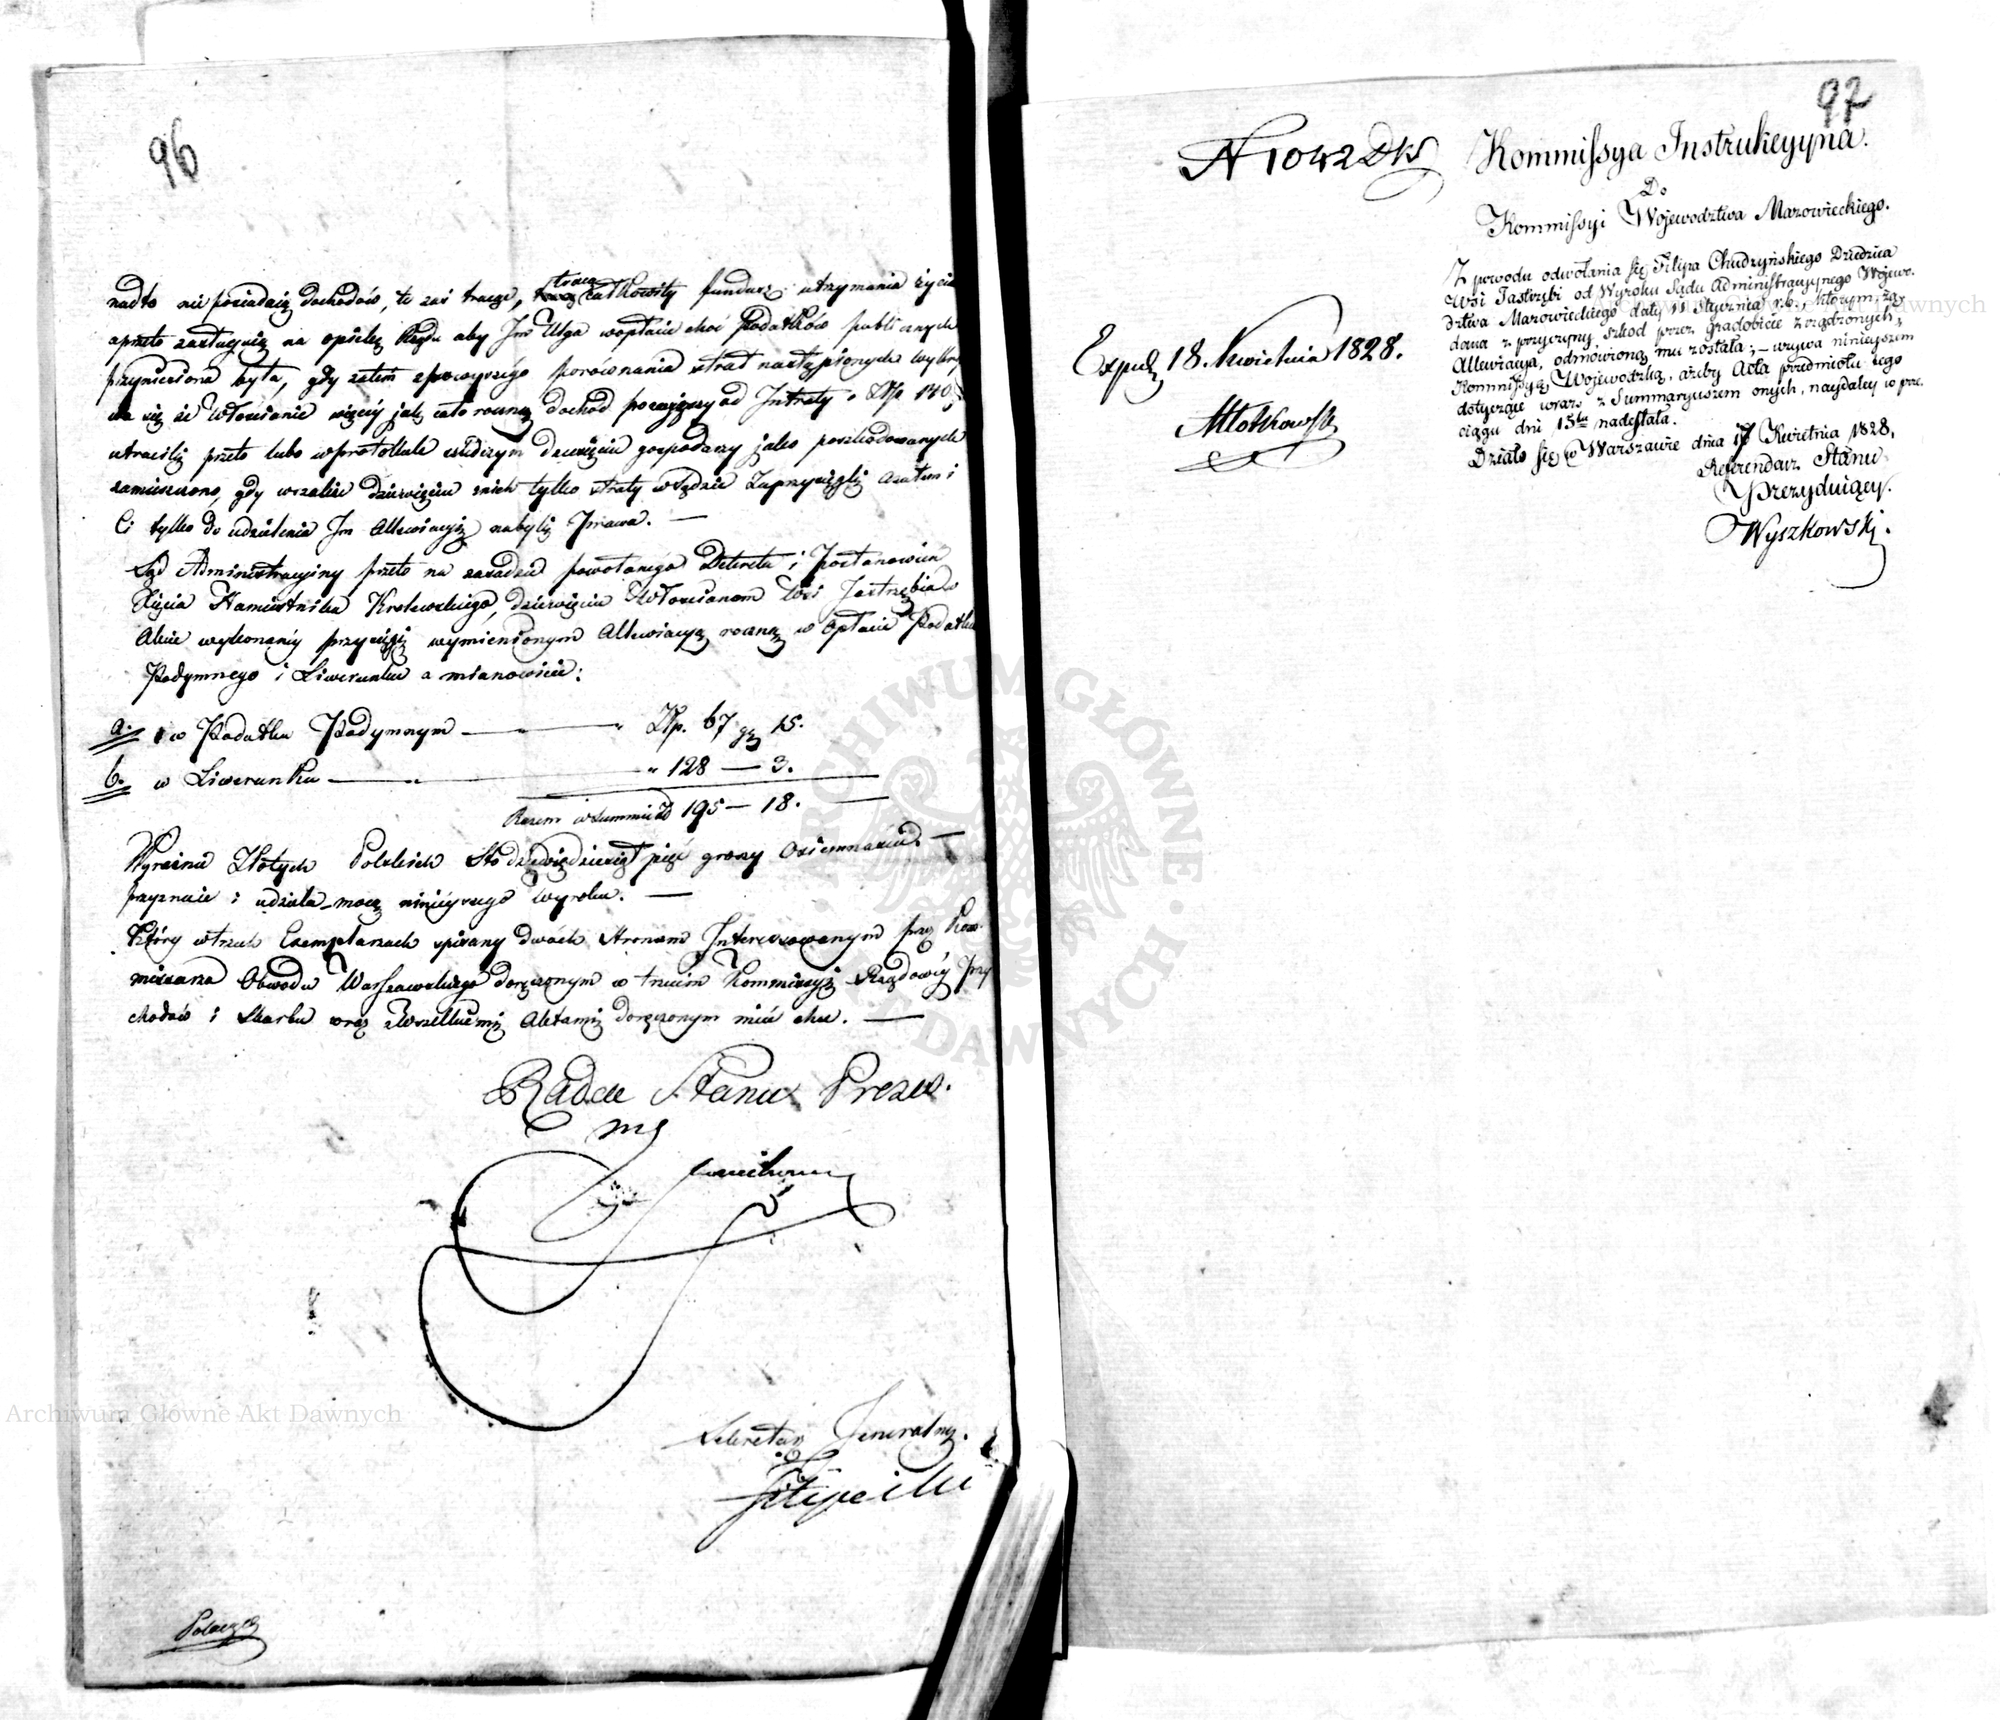 96
nadto nie posiadaią dochodów, te zaś tracąc, tracą całkowity fundusz utrzymania życia
aprzeto zasługuią na opiekę Rządu aby Im Ulga wopłacie choć Podatków publicznych
przyniesiona była, gdy zatem zpowyższego porównania strat nastąpionych wykry
wa się że Włościanie więcéy jak całoroczny dochod Intraty Złp 140
utracili, przeto lubo wprotokule dziewięciu gospodarzy jako poszkodowanych
zamieszczono, gdy wszakże dziewięciu znich tylko straty w Sądzie Zaprzysięgli azatem i
Ci tylko do udzielenia Im Allewiacyi nabyli Prawa. —
Sąd Administracyjny przeto na zasadzie powołanego Dekretu i Postanowień
Xięcia Namiestnika Krolewskiego, dziewięciu Włościanom Wsi Jastrzębia w
Akcie wykonanéy przysięgi wymienionym Allewiacyą roczną w Opłacie Podatku
Podymnego i Liwerunku a mianowicie:
a. w Podatku Podymnym — Złp. 67 gr 15.
b. w Liwerunku — " 128 — 3.
Razem wSummie Zł 195 — 18. —
Wyraźnie Złotych Polskich Sto dziewięćdziesiąt pięć groszy Osiemnaście. —
przyznaie i udziela mocą ninieyszego Wyroku. —
Który wtrzech Exemplarzach spisany dwóch Stronom Interessowanym przez Kom-
missarza Obwodu Warszawskiego doręczonym w trzecim Kommissyi Rządowéy Przy
chodów i Skarbu wraz zWszelkiemi Aktami doręczonym mieć chce. —
Radca Stanu Prezes.
Sekretarz Jeneralny.
Filipecki
97
N 1042 DKS
Kommissya Instrukcyyna.
Do
Kommissyi Wojewodztwa Mazowieckiego.
Z powodu odwołania się Filipa Chudzyńskiego Dziedzica
Wsi Jastrzębi od Wyroku Sądu Administracyjnego Wojewo-
dztwa Mazowieckiego daty 11 Stycznia r. b., którym żą-
dana z przyczyny szkod przez gradobicie zrządzonych,
Allewiacya, odmowioną mu została; — wzywa ninieyszem
Kommissyą Wojewodzką, ażeby Akta przedmiotu tego
dotyczące wraz z Summaryuszem onych, naydaley w prze-
ciągu dni 15tu nadesłała.
Działo się w Warszawie dnia 17 Kwietnia 1828.
Referendarz Stanu
Prezyduiący.
Wyszkowski.
Exped 18. Kwietnia 1828.
Młotkowski
Archiwum Główne Akt Dawnych
Archiwum Główne Akt Dawnych
ARCHIWUM GŁÓWNE · AKT DAWNYCH ·